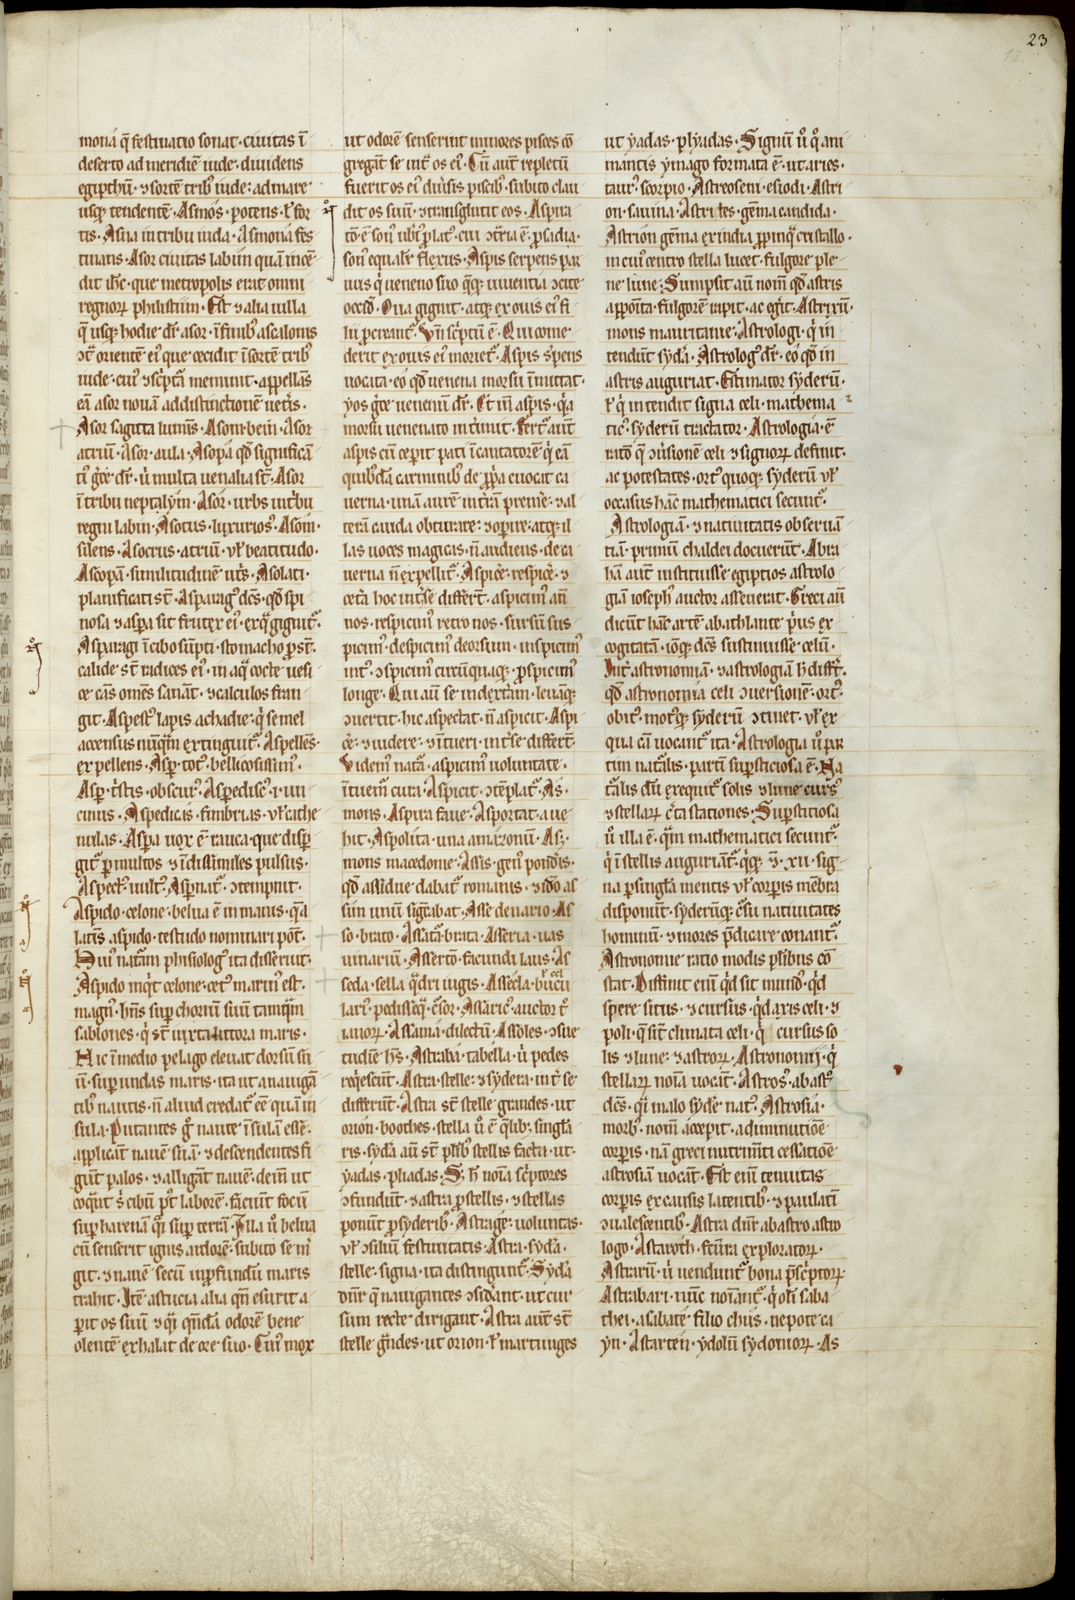 23
mona q̄ festinatio sonat · ciuitas ī
deserto ad meridiē iude · diuidens
egipthū · ⁊ sortē tribꝰ iude · ad mare
usqꝫ tendentē · Asmos · potens · ł for
tis · Asna in tribu iuda · Asmona fes
tinans · Asor ciuitas labiin quā incē
dit · que metropolis erat omni
regnoꝝ philistiim · Est ⁊ alia uilla
q̄ usqꝫ hodie dr̄ · asor · ī finibꝰ ascalonis
ꝯt̄ orientē eiꝰ que cecidit ī sortē tribꝰ
iude · cuiꝰ ⁊ sc̄pta meminit · appellās
eā asor nouā ad distinctionē uet̄is ·
Asor sagitta luminis · Asor
atriū · Asor · aula · Asopā qd̄ significā
ti gͥce dr̄ · ů multa uenalia st̄ · Asor
ī tribu neptalym · Asor · urbs
regni labin · Asotus · luxuriosꝰ · Asom ·
silens · Asocrus · atriū · uł beatitudo ·
Ascopā · similitudinē · Asolati ·
planificati st̄ · Asparagꝰ dc̄s · qd̄ spi
nosa ⁊ aspa sit frutex eiꝰ · ex q̊ gignit᷑ ·
Asparagi ī cibo sūpti · stomacho ꝓst̄ ·
calide st̄ radices eiꝰ · in aq̄ cocte uesi
ce omēs sanāt · ⁊ calculos fran
git · Aspestꝰ lapis achadie · q̇ semel
accensus nūq̄m extinguit᷑ · Aspellēs ·
expellens · Asp · totꝰ · bellicosissimꝰ ·
Asp · tͥstis · obscurꝰ · Aspediscꝰ · ı · un
cinus · Aspedicas · fimbrias · uł cathe
nulas · Aspa uox ē · rauca · que disp
git᷑ ꝑ multos ⁊ īdissimiles pulsus ·
Aspect᷑ · uult᷑ · Asp̄nat᷑ · ꝯtempnit ·
Aspido · celone · belua ē in maris · q̄a
latīs aspido · testudo nominari pōt ·
Huiꝰ natam phisiologꝰ ita disseruit ·
Aspido inq̇t celone · marinꝰ est ·
magnꝰ · hn̄s sup choriū suū tamq̄m
sablones · q̇ st̄ iuxta littora maris ·
Hic ī medio pelago eleuat dorsū su
ū · sup undas maris · ita ut a nauigā
tibꝰ nautis · n̄ aliud credat᷑ eē quā in
sula · Putantes gͦ naute īsulā esse ·
applicāt nauē suā · ⁊ descendentes fi
gūt palos · ⁊ alligāt nauē · dein̄ ut
coq̄ut s̄ cibū pͦt laborē · faciūt focū
sup harenā q̊i sup terrā · Illa ů belua
cū senserit ignis ardorē · subito se m̄
git · ⁊ nauē secū in ꝓfundū maris
trahit · Itē astucia alia qn̄ esurit a
pit os suū · ⁊ q̊i q̄ndā odorē bene
olentē exhalat de ore suo · Cuiꝰ mox
ut odorē senserint minores pisces cō
gregāt se int͛ os eiꝰ · Cū aut̄ repletū
fuerit os eiꝰ diu͛sis piscibꝰ · subito clau
dit os suū · ⁊ transglutit eos · Aspira
tō ē sonꝰ ubi plat᷑ · cui ꝯt͛ria ē · psadia ·
sonꝰ equalit͛ flexus · Aspis serpens par
uus q̇ ueneno suo q̄qꝫ uiuentia
occid᷑ · Oua gignit · atqꝫ ex ouis eiꝰ fi
lii pcreant᷑ · Vn̄ sc̄ptū ē · Qui come
derit ex ouis eiꝰ moriet᷑ · Aspis s̄pens
uocata · eo qd̄ uenena morsu ī mittat ·
yos gͥce uenenū dr̄ · Et in̄ aspis · q̄a
morsu uenenato int͛imit · Fert᷑ aut̄
aspis cū ceperit pati īcantatorē q̇ eā
quibꝰdā carminibꝰ de ꝓpa euocat ca
uerna · unā aurē in t͛rā premē · ⁊ al
terā cauda obturare · ⁊ opire · atqꝫ il
las uoces magicas · n̄ audiens · de ca
uerna n̄ expellit᷑ · Aspice͛ · respice͛ · ⁊
cet͛a hoc int͛ se differt̄ · aspicimꝰ an̄
nos · respicimꝰ retro nos · sursū sus
picimꝰ · despicimꝰ deorsum · inspicimꝰ
int᷑ · ꝯspicimꝰ circūquaqꝫ · pspicimꝰ
longe · Qui aū se in dext͛am · leuāqꝫ
ꝯuertit · hic aspectat · n̄ aspicit · Aspi
ce͛ · ⁊ uidere · ⁊ īueri · int͛ se differt̄ ·
Videmꝰ nat᷑a · aspicimꝰ uoluntate ·
ītuem᷑ cura · Aspicit · ꝯtēplat᷑ · As ·
mons · Aspira faue · Asportat · a ue
hit · Aspolita · una amazonū · As ·
mons macedonie · Assis · genꝰ pond͛is ·
qd̄ assidue dabat᷑ romanis · ⁊ ido as
sim unū · Asse denario · As
so · brato · Assata · brata · Asseria · uas
uinariū · Assertō · facundi laus · As
seda · sella q̄dri iugis · Assecla · bucu
lariꝰ · pedisseq̄ · c͛sor · Assaricꝰ · auctor t͛
iauoꝝ · Assana · dilectū · Assoles · ꝯsue
tudinē · Astraba · tabella · ů pedes
req̇escūt · Astra · stelle · ⁊ sydera · int͛ se
differūt · Astra st̄ stelle grandes · ut
orion · boothes · stella ů ē q̄libꝫ singla
ris · syda aū st̄ plibꝰ stellis facta · ut ·
yadas · pliadas · Sꝫ h̄ noīa sc̄ptores
ꝯfundūt · ⁊ astra ꝓ stellis · ⁊ stellas
ponūt ꝓ syderibꝰ · Astrage · uoluntas ·
uł ꝯsiliū festiuitatis · Astra · syda ·
stelle · signa · ita distingunt᷑ · Syda
dn̄r q̄ nauigantes ꝯsid͛ant · ut cur
sum recte dirigant · Astra aut̄ st̄
stelle g̊ndes · ut orion · ł martunges
ut yadas · plyadas · Signū ů q̊ ani
mantis ymago formata ē · ut aries ·
taur᷑ · scorpio · Astreoseni · esiodi · Astri
on · sauina · Astrites · gēma candida ·
Astrion gēma ex india ꝓpinq̄ cristallo ·
in cuiꝰ centro stella lucet · fulgore ple
ne lune · Sumpsit aū nom̄ qd̄ astris
apposita · fulgorē rapit · ac eg͛it · Astrixiū
mons mauritanie · Astrologi · q̇ in
tendūt syda · Astrologꝰ dr̄ · eo qd̄ in
astris auguriat · Estimator syderū ·
ł q̇ intendit signa celi · mathema
ticꝰ · syderū tractator · Astrologia · ē
ratō q̄ ꝯu͛sionē celi ⁊ signoꝝ definit ·
ac potestates · ortꝰ quoqꝫ syderū uł
occasus hāc mathematici secunt᷑ ·
Astrologiā · ⁊ natiuitatis obseruā
tiā · primū chaldei docuerūt · Abra
hā aut̄ instituisse egiptios astrolo
giā ioseph auctor asseuerat · Greci aū
dicūt hāc artē ab athlante pͥus ex
cogitatā · iōqꝫ dc̄s sustinuisse celū ·
Int͛ astronomiā · ⁊ astrologiā h̄ differ̄t ·
qd̄ astronomia celi ꝯuersionē · ortꝰ
obitꝰ · motꝰqꝫ syderū ꝯtinet · uł ex
qua cā uocant᷑ ita · Astrologia ů par
tim nat͛alis · partī supsticiosa ē · Na
t͛alis dū exequit᷑ solis ⁊ lune cursꝰ
⁊ stellaꝝ c͛ta stationes · Supstitiosa
ů illa ē · q̄m mathematici secunt᷑ ·
q̇ ī stellis auguriant᷑ · q̄qꝫ · ⁊ · xii · sig
na p singla mentis uł corpis mēbra
disponūt · syderūqꝫ c͛su natiuitates
hominū · ⁊ mores p̄dicare conant᷑ ·
Astronomie ratio modis plibꝰ cō
stat · Diffinit eni qd̄ sit mūdꝰ · qd̄
spere situs · ⁊ cursus · qd̄ axis celi · ⁊
poli · q̄ st̄ climata celi · q̄ cursus so
lis ⁊ lune · ⁊ astroꝝ · Astronomij · q̇
stellaꝝ noīa uocāt · Astrosꝰ · ab ast᷑
dc̄s · q̊i malo syde natꝰ · Astrosia ·
morbꝰ · nom̄ accepit · a diminutiōe
corpis · nā greci nutrim̄ti cessatiōē
astrosiam uocāt · Est eni tenuitas
corpis ex causis latentibꝰ · ⁊ paulati
ꝯualescentibꝰ · Astra dn̄r ab astro astro
logo · Astaroth · exploratoꝝ ·
Astrarū · ů uendunt᷑ bona pͦscͥptoꝝ ·
Astrabari · nūc noiant᷑ · q̇ olī saba
thei · a sabate · filio chus · nepote ca
yn · Astarten · ydolū sydonioꝝ · As